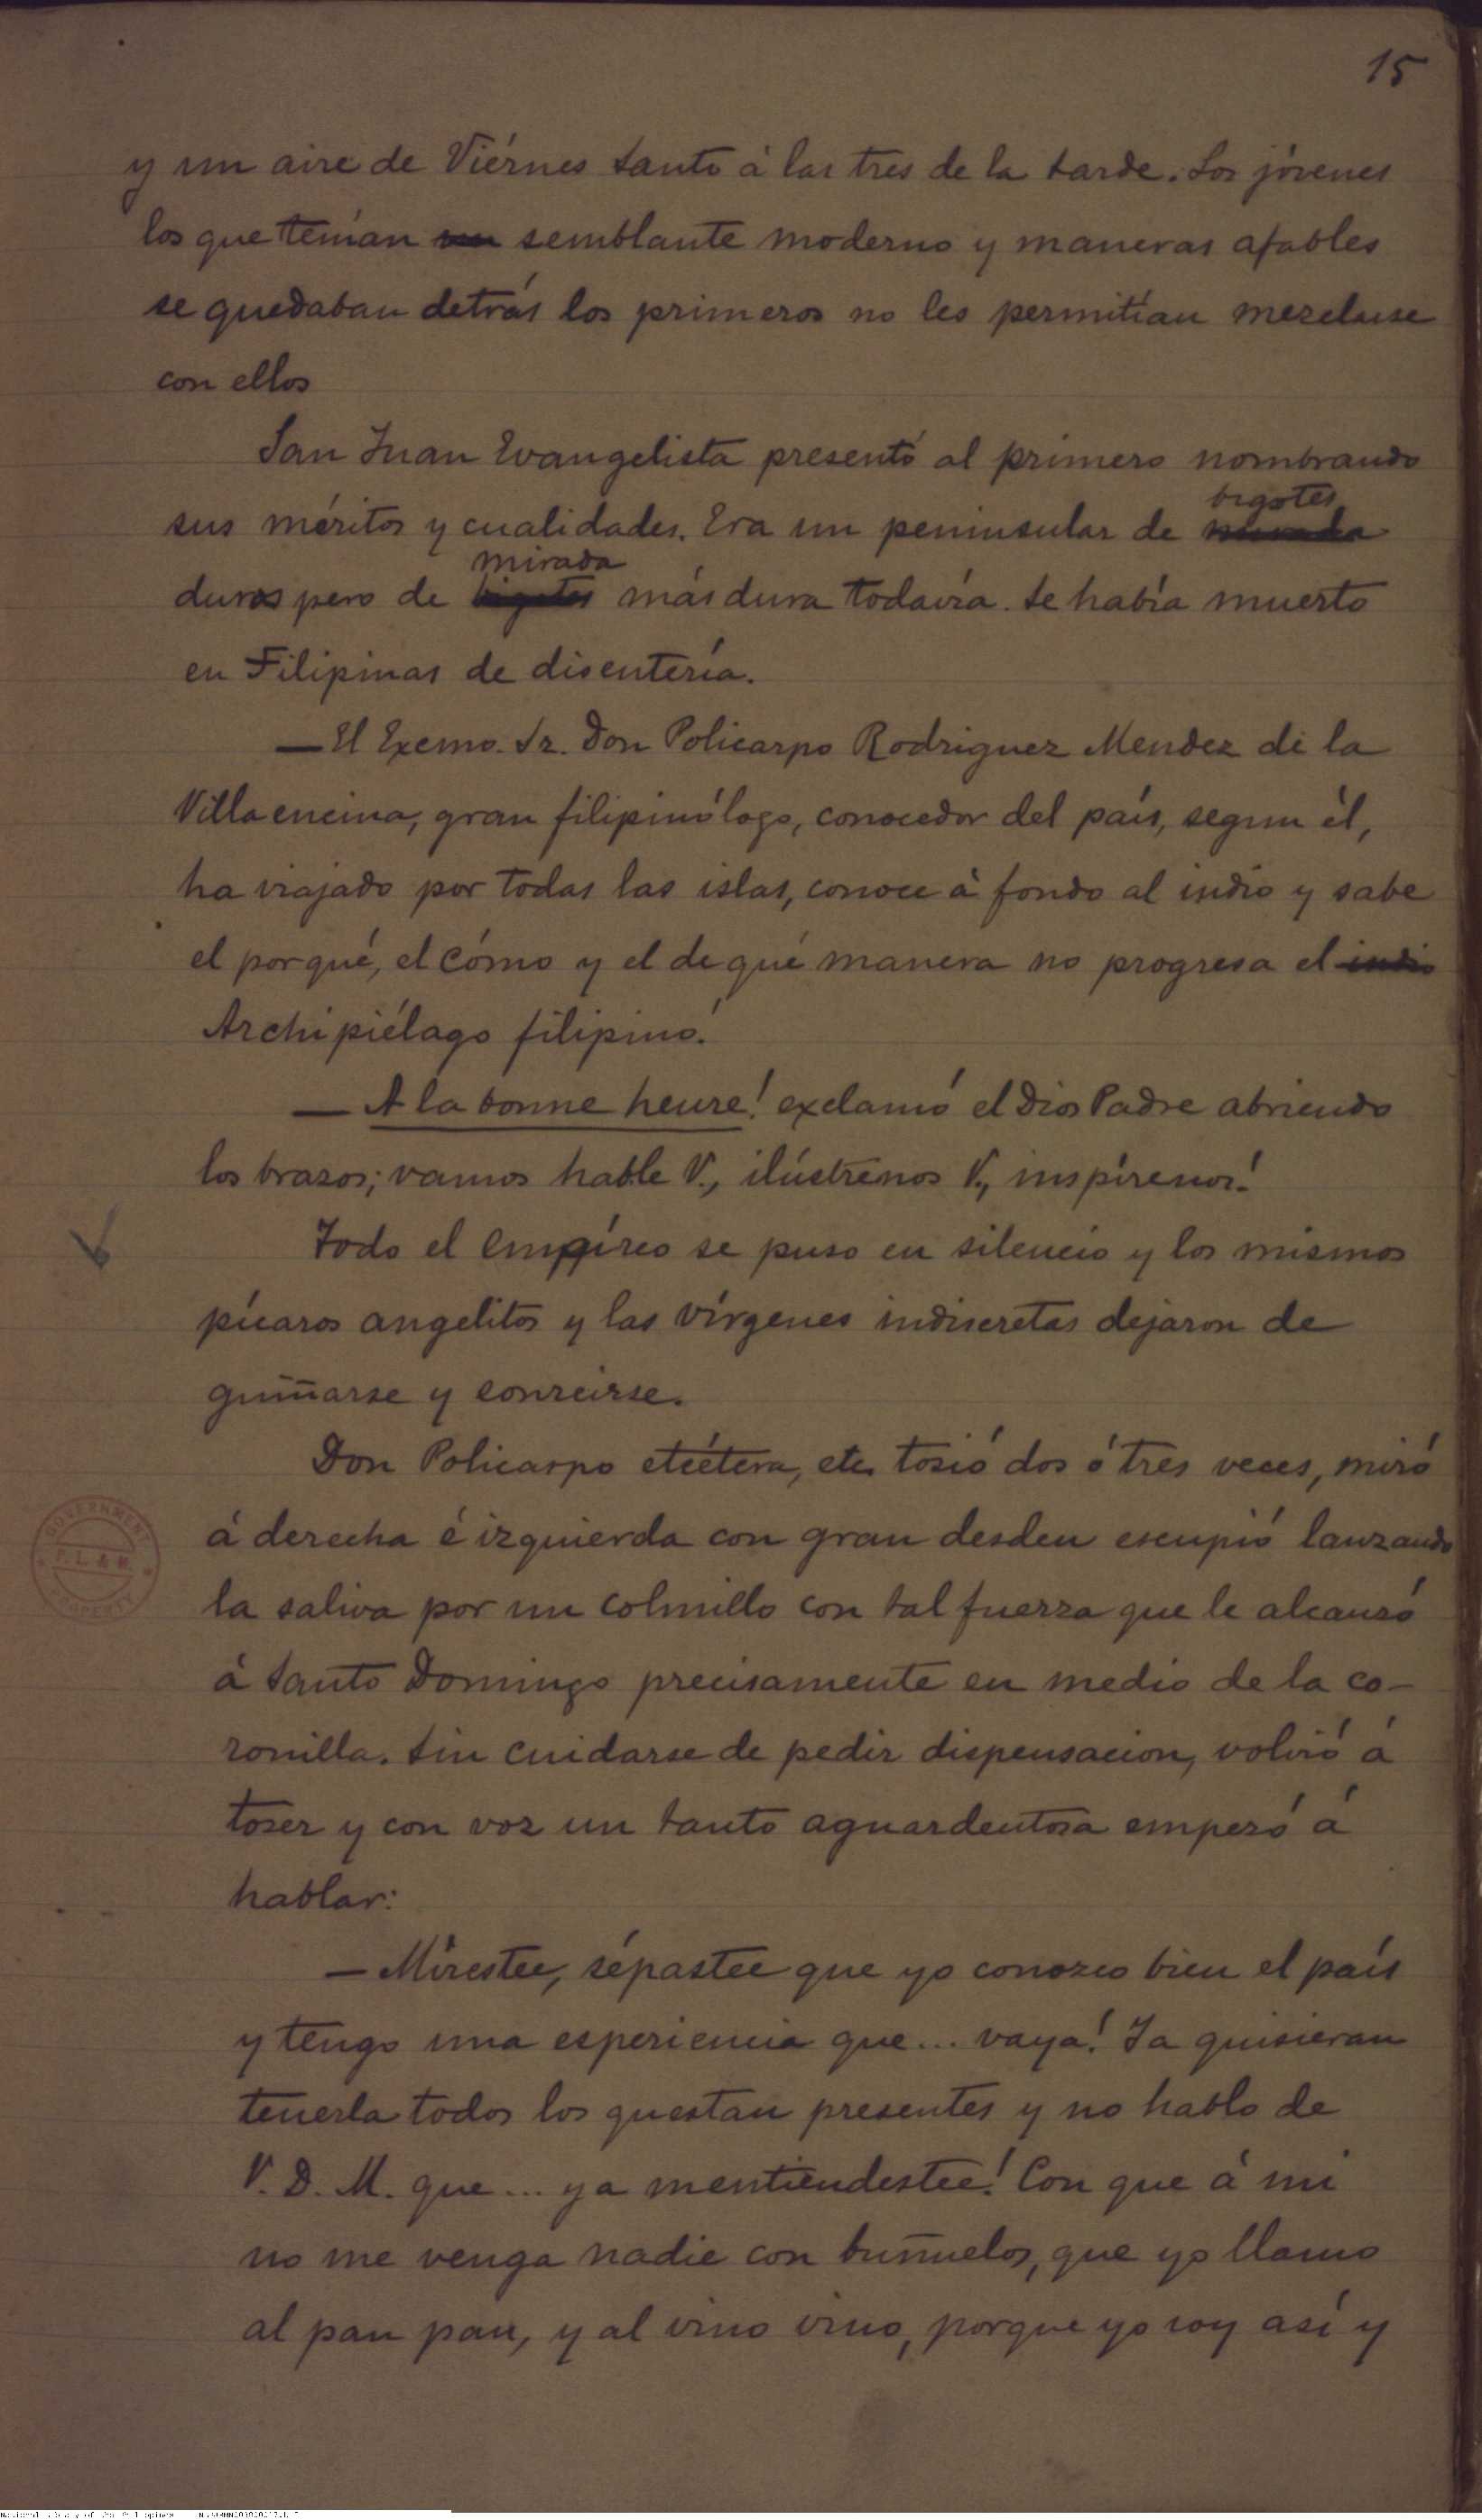 15
y un aire de Viérnes Santo á las tres de la tarde. Los jóvenes
los que tenían un semblante moderno y maneras afables
se quedaban detrás los primeros no les permitían mezclarse
con ellos
San Juan Evangelista presentó al primero nombrando
bigotes
sus méritos y cualidades. Era un peninsular de mirada
mirada
duros pero de bigotes más dura todavía. Se había muerto
en Filipinas de disentería.
— El Excmo. Sr. Don Policarpo Rodriguez Mendez de la
Villaencina, gran filipinólogo, conocedor del país, segun él,
ha viajado por todas las islas, conoce á fondo al indio y sabe
el porqué, el cómo y el de qué manera no progresa el indio
Archipiélago filipino!
— A la bonne heure! exclamó el Dios Padre abriendo
los brazos; vamos hable V., ilústrenos V., inspírenos!
Todo el empíreo se puso en silencio y los mismos
pícaros angelitos y las vírgenes indiscretas dejaron de
guiñarse y sonreirse.
Don Policarpo etcétera, etc. tosió dos ó tres veces, miró
á derecha é izquierda con gran desden escupió lanzando
la saliva por un colmillo con tal fuerza que le alcanzó
á Santo Domingo precisamente en medio de la co-
ronilla. Sin cuidarse de pedir dispensacion, volvió á
toser y con voz un tanto aguardentosa empezó á
hablar:
— Mirestee, sépastee que yo conozco bien el país
y tengo una esperiencia que... vaya! Ya quisieran
tenerla todos los questan presentes y no hablo de
V. D. M. que... ya mentiendestee! Con que á mi
no me venga nadie con buñuelos, que yo llamo
al pan pan, y al vino vino, porque yo soy así y
GOVERNMENT
P. L. & M.
PROPERTY